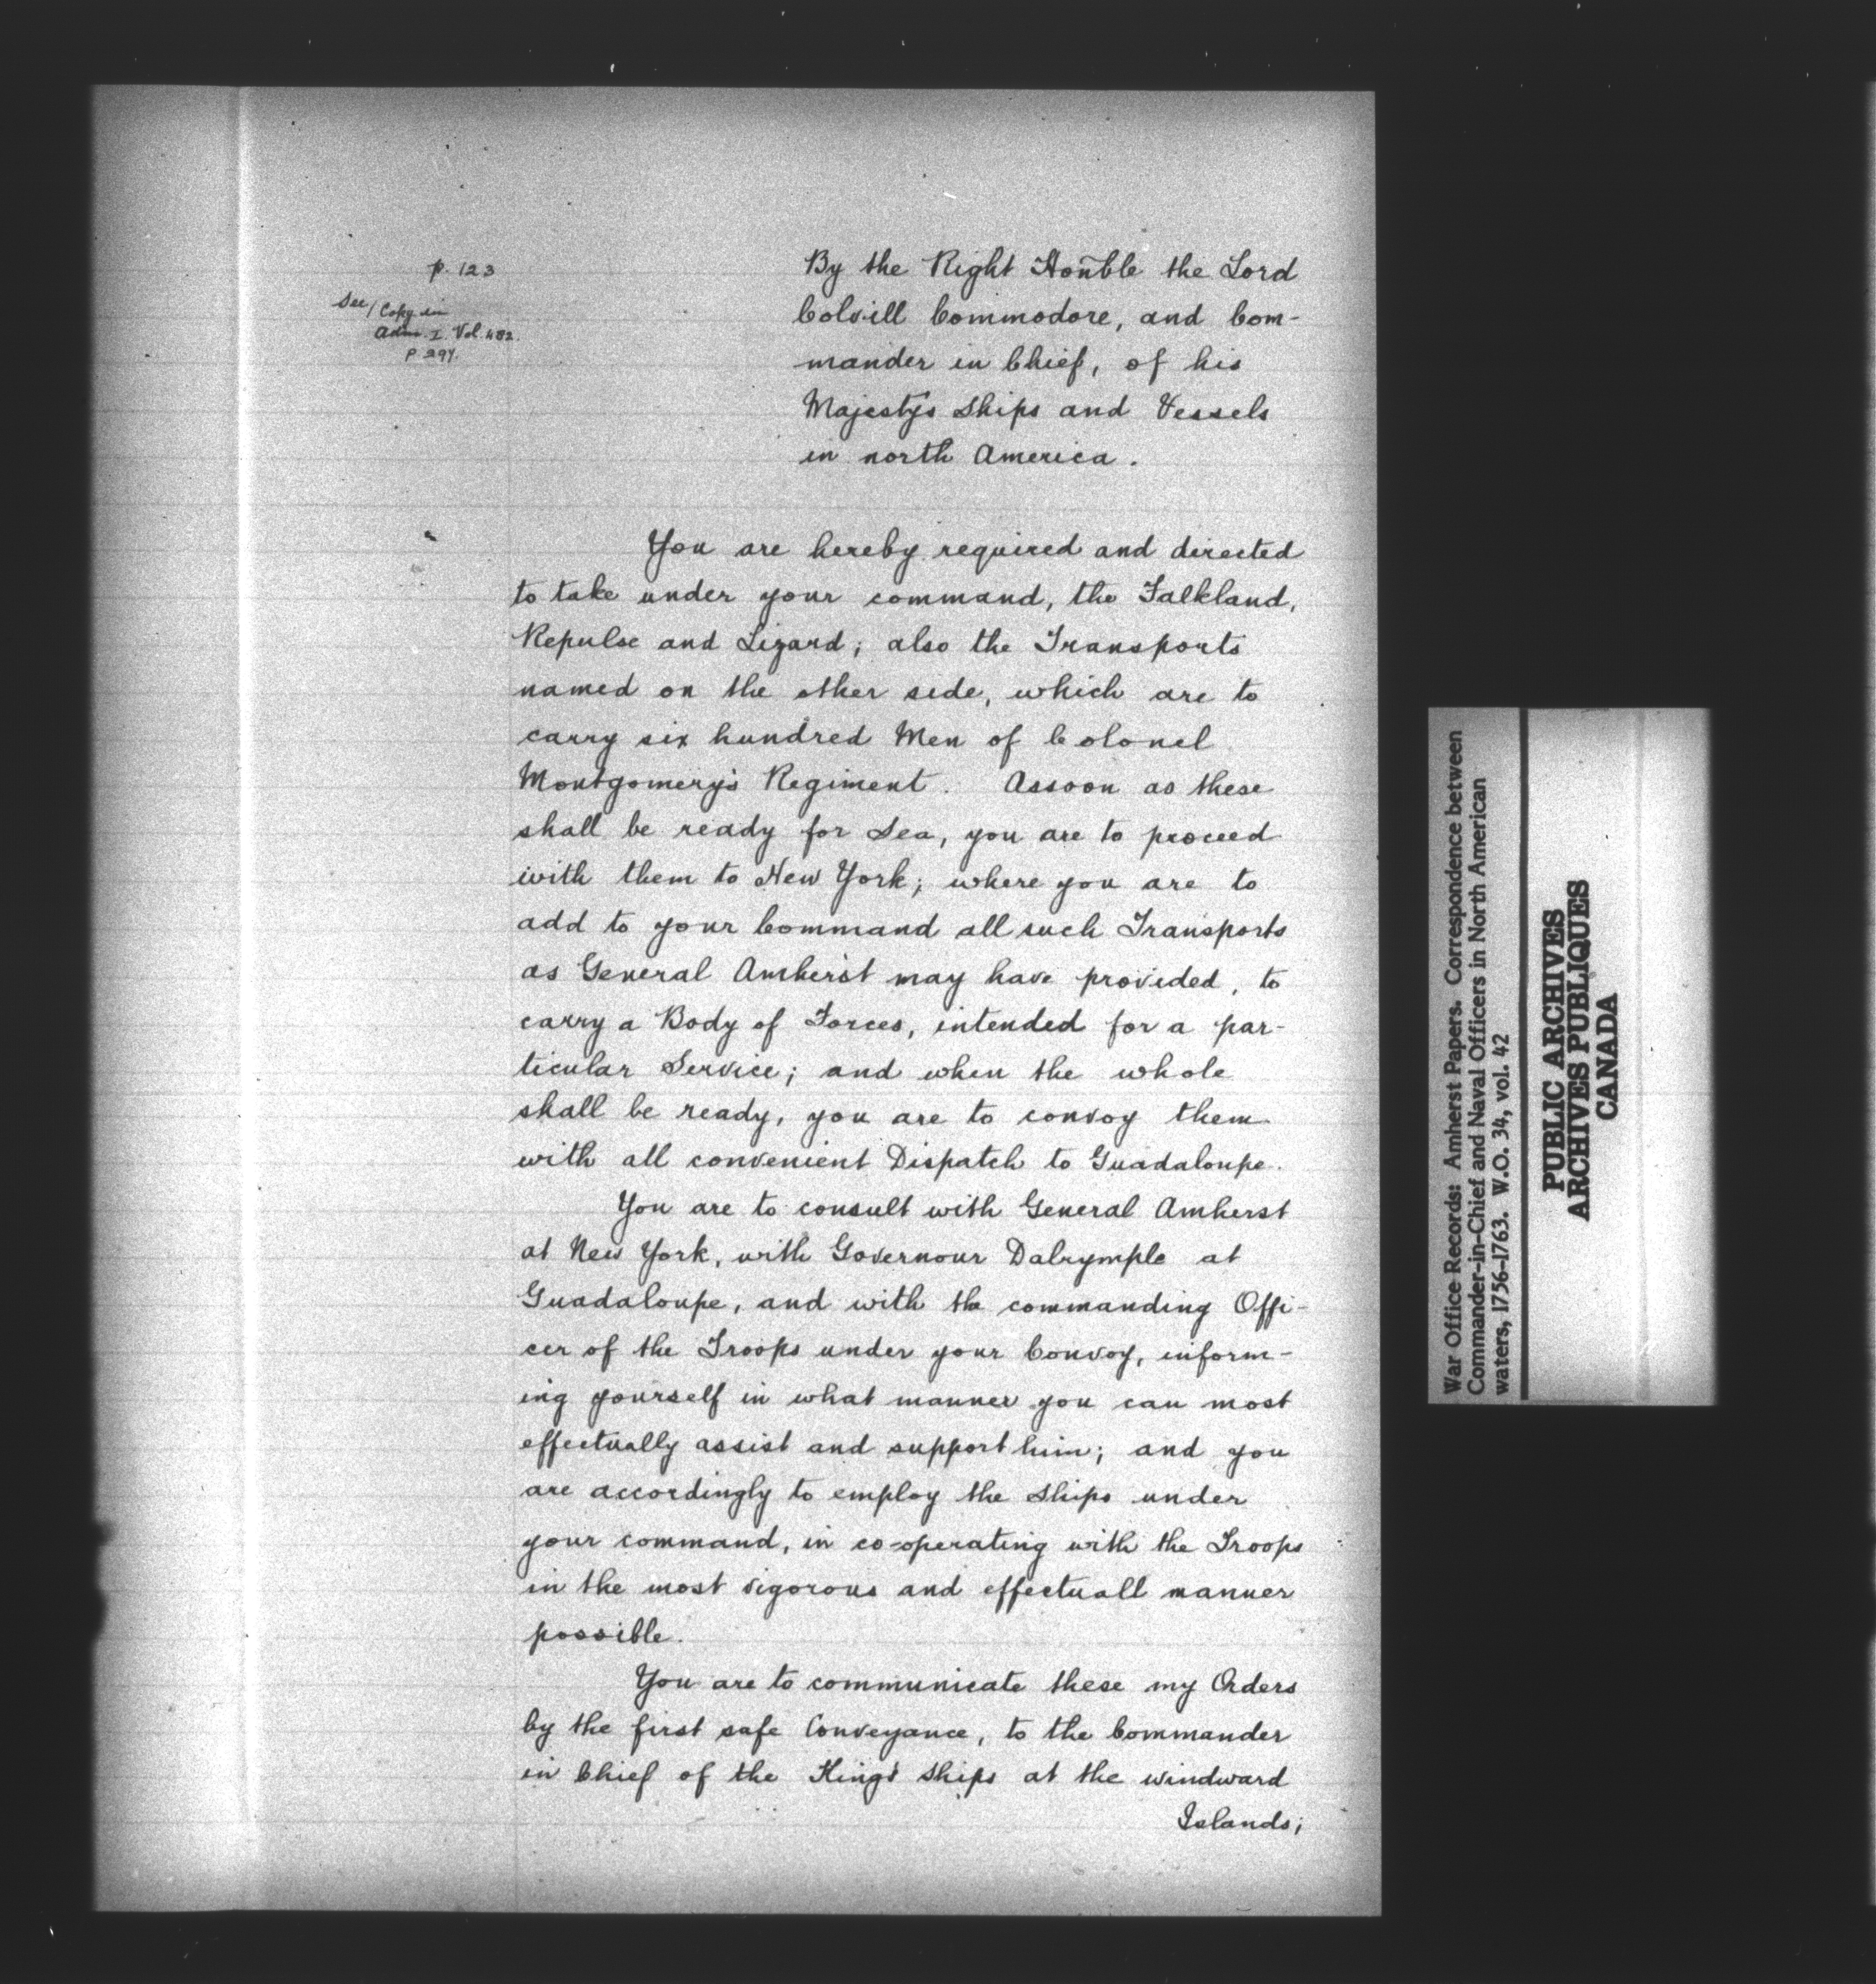 p. 123
See / Copy in
Adm. I. Vol. 482.
p 297.
By the Right Honble the Lord
Colvill Commodore, and Com-
mander in Chief, of his
Majesty's Ships and Vessels
in north America.
You are hereby required and directed
to take under your command, the Falkland,
Repulse and Lizard; also the Transports
named on the other side, which are to
carry six hundred Men of Colonel
Montgomery's Regiment. Assoon as these
shall be ready for Sea, you are to proceed
with them to New York; where you are to
add to your Command all such Transports
as General Amherst may have provided, to
carry a Body of Forces, intended for a par-
ticular Service; and when the whole
shall be ready, you are to convoy them
with all convenient Dispatch to Guadaloupe.
You are to consult with General Amherst
at New York, with Governour Dalrymple at
Guadaloupe, and with the commanding Offi-
cer of the Troops under your Convoy, inform-
ing yourself in what manner you can most
effectually assist and support him; and you
are accordingly to employ the Ships under
your command, in co-operating with the Troops
in the most vigorous and effectuall manner
possible.
You are to communicate these my Orders
by the first safe Conveyance, to the Commander
in Chief of the King's Ships at the windward
Islands;
War Office Records: Amherst Papers. Correspondence between
Commander-in-Chief and Naval Officers in North American
waters, 1756-1763. W.O. 34, vol. 42
PUBLIC ARCHIVES
ARCHIVES PUBLIQUES
CANADA